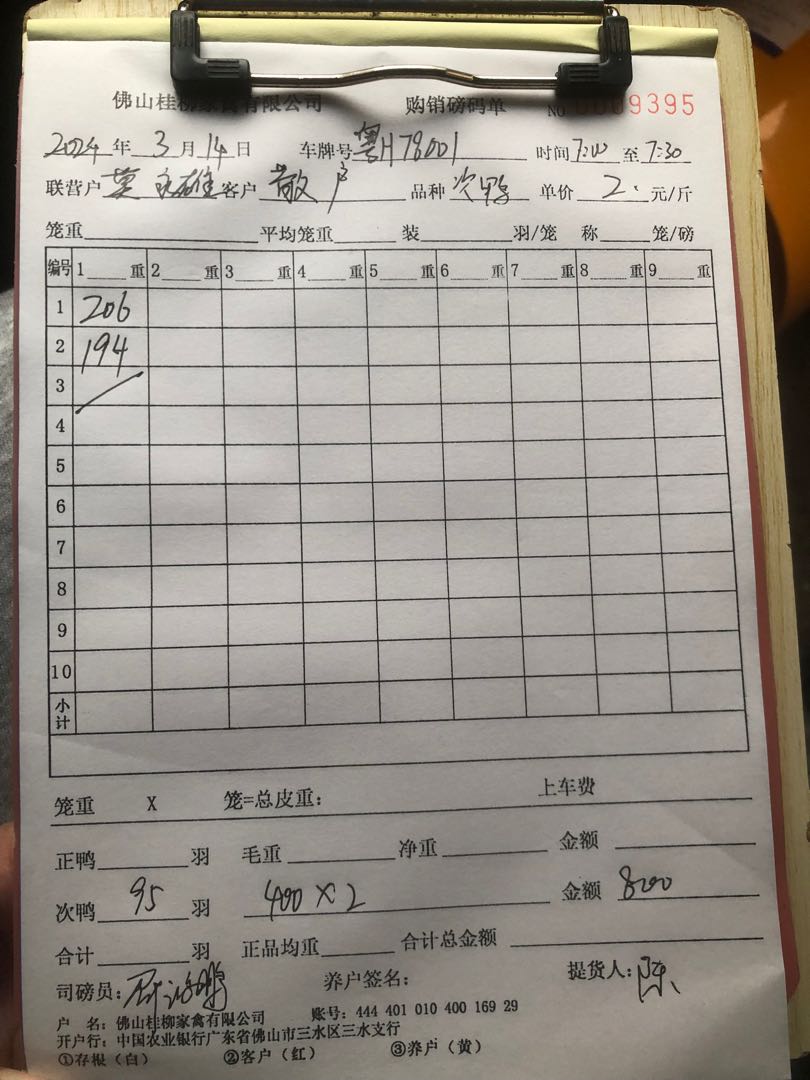 佛山桂柳家禽有限公司 购销磅码单 NO 0009395
2024年3月14日 车牌号粤H78001 时间7:00至7:30
联营户 莫永雄 客户 散户 品种 次鸭 单价 2. 元/斤
笼重 平均笼重 装 羽/笼 称 笼/磅
编号 1 重 2 重 3 重 4 重 5 重 6 重 7 重 8 重 9 重
1 206
2 194
3
4
5
6
7
8
9
10
小计
笼重 X 笼=总皮重: 上车费
正鸭 羽 毛重 净重 金额
次鸭 95 羽 400×2 金额 800
合计 羽 正品均重 合计总金额
司磅员: 养户签名: 提货人:陈
户 名: 佛山桂柳家禽有限公司 账号: 444 401 010 400 169 29
开户行: 中国农业银行广东省佛山市三水区三水支行
①存根(白) ②客户(红) ③养户(黄)